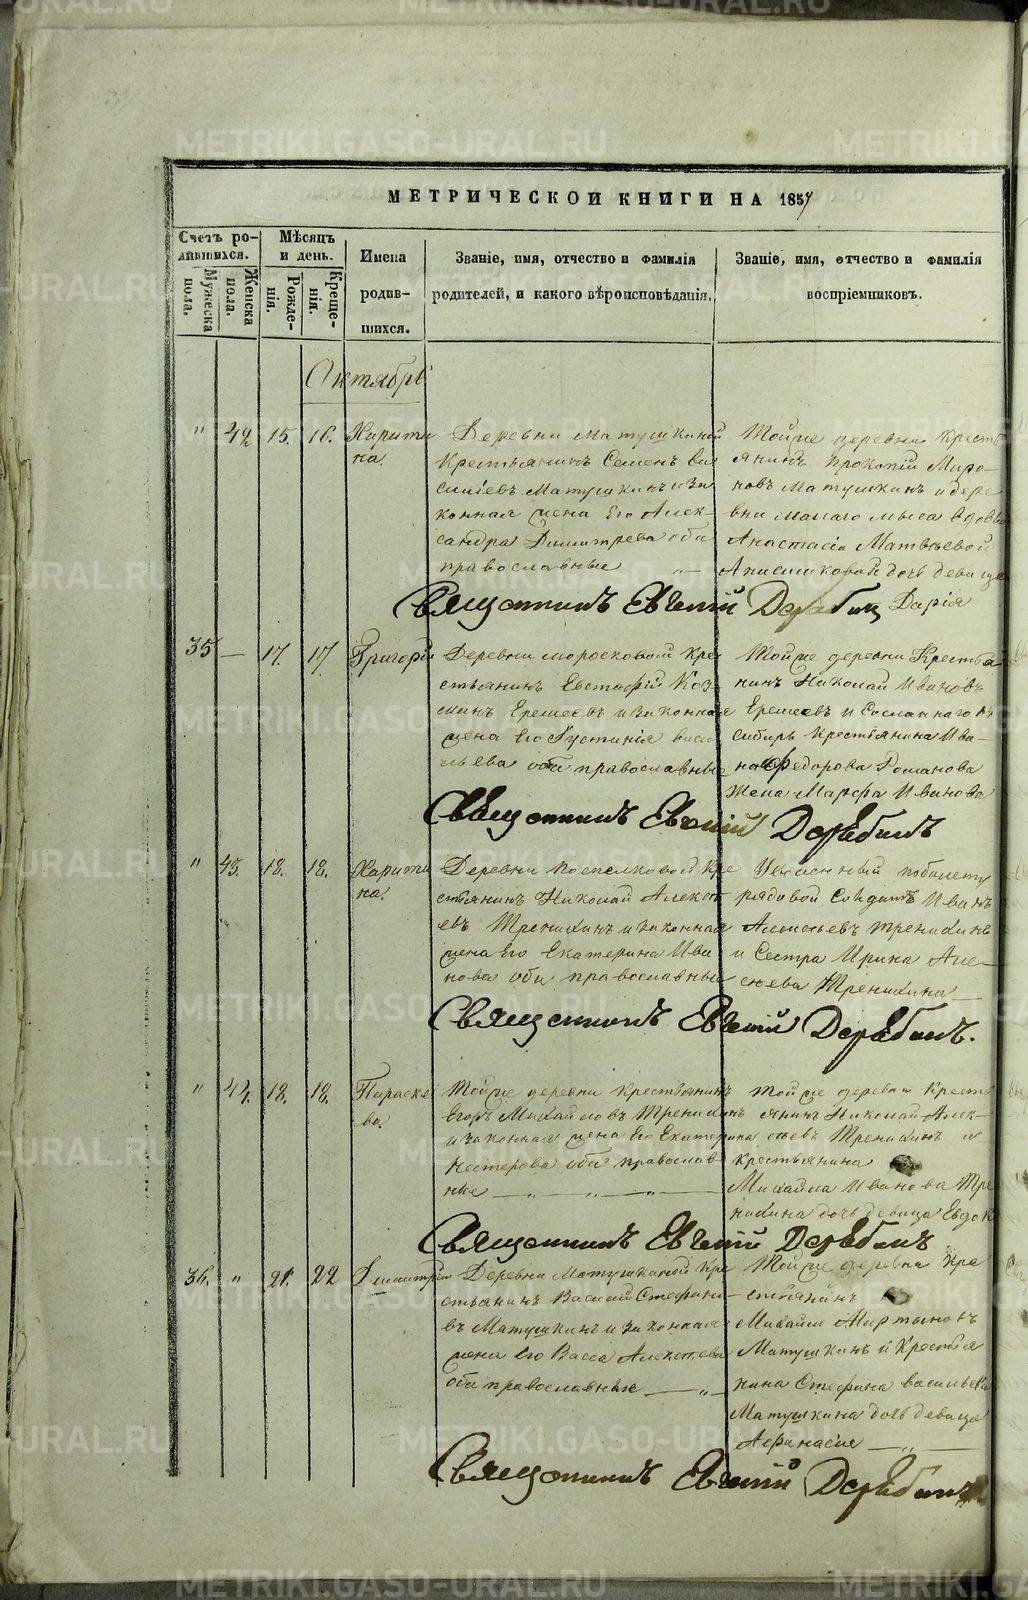 МЕТРИЧЕСКОЙ КНИГИ НА 1857
Счетъ родившихся.
Мѣсяцъ и день.
Имена родившихся.
Званіе, имя, отчество и фамилія родителей, и какого вѣроисповѣданія.
Званіе, имя, отчество и фамилія воспріемниковъ.
Мужеска пола.
Женска пола.
Рожденія.
Крещенія.
Октябрь
" 42 15. 16. Харитина.
Деревни Матушкиной
Крестьянинъ Семенъ Ва
силіевъ Матушкинъ и за
конная жена Его Алек-
сандра Димитрева оба
православные
Тойже деревни Кресть
янинъ Прокопій Миро-
новъ Матушкинъ и дере
вни малаго мыса вдовы
Анастасіи Матвѣевой
дочь девица
Дарія
Священникъ Евгений Дерябин
35 — 17. 17. Григорій
Деревни Моросковой Кре
стьянинъ Евстафій Коз-
минъ Ершеевъ и законная
жена Его Устинія Васи
льева оба православные
Тойже деревни Крестья
нинъ Николай Ивановъ
Ершеевъ и Сосланнаго въ
Сибирь Крестьянина Ива-
на Федорова Романова
Жена Марфа Иванова
Священникъ Евгений Дерябинъ
" 43. 18. 18. Харитина.
Деревни Поспелковой Кре
стьянинъ Николай Алексе
евъ Тренихинъ и законная
жена Его Екатерина Ива
нова оба православные
Уволенный побилету
рядовой Солдатъ Иванъ
Алексьевъ Тренихинъ
и Сестра Ирина Але-
сѣева Тренихина
Священникъ Евгений Дерябинъ.
" 44. 18. 18. Параскева.
Тойже деревни Крестьянинъ
Егоръ Михайловъ Тренихинъ
и законная жена Его Екатерина
Нестерова оба православ-
ные — " — " — " —
Тойже деревни Кресть
янинъ Николай Алек-
сѣевъ Тренихинъ и
Крестьянина
Михайла Иванова Тре
нихина дочь девица Евдок
Священникъ Евгений Дерябинъ
36. " 21. 22 Димитрій
Деревни Матушкиной Кре
стьянинъ Василій Стефано
въ Матушкинъ и законная
жена Его Васса Алексеева
оба православные — " —
Тойже деревни Кре
стьянинъ
Михайла Мартыновъ
Матушкинъ и Крестья
нина Стефана Васильева
Матушкина дочь девица
Афанасія — " —
Священникъ Евгений Дерябинъ
METRIKI.GASO-URAL.RU